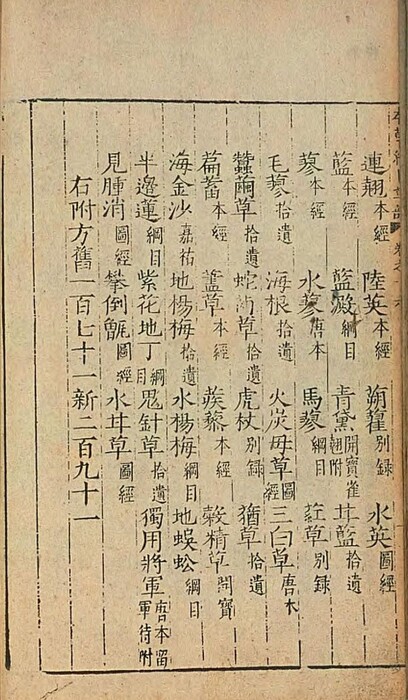 本草綱目草部 卷之十六
連翹本經 陸英本經 蒴藋別錄 水英圖經
藍本經 藍澱綱目 青黛開寶雀翹附 甘藍拾遺
蓼本經 水蓼唐本 馬蓼綱目 葒草別錄
毛蓼拾遺 海根拾遺 火炭母草圖經 三白草唐本
蠶繭草拾遺 蛇䓳草拾遺 虎杖別錄 蕕草拾遺
萹蓄本經 藎草本經 蒺藜本經 穀精草開寶
海金沙嘉祐 地楊梅拾遺 水楊梅綱目 地蜈蚣綱目
半邊蓮綱目 紫花地丁綱目 鬼針草拾遺 獨用將軍唐本留軍待附
見腫消圖經 攀倒甑圖經 水甘草圖經
右附方舊一百七十一新二百九十一